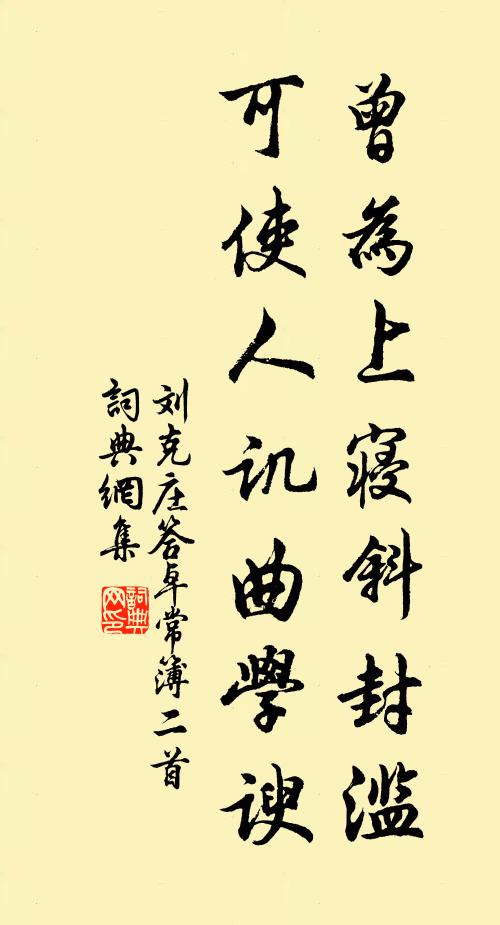 曾為上寝斜封滥
可使人讥曲學谀
刘克庄答卓常簿二首
詞典網集
詞典网印